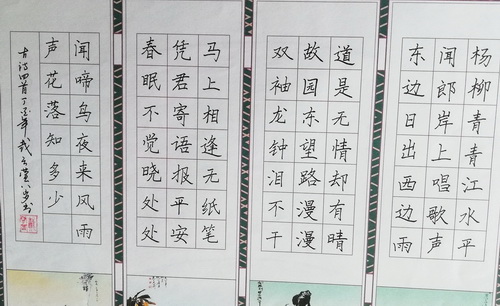 杨柳青青江水平
闻郎岸上唱歌声
东边日出西边雨
道是无情却有晴
故园东望路漫漫
双袖龙钟泪不干
马上相逢无纸笔
凭君寄语报平安
春眠不觉晓处处
闻啼鸟夜来风雨
声花落知多少
古诗四首丁酉年